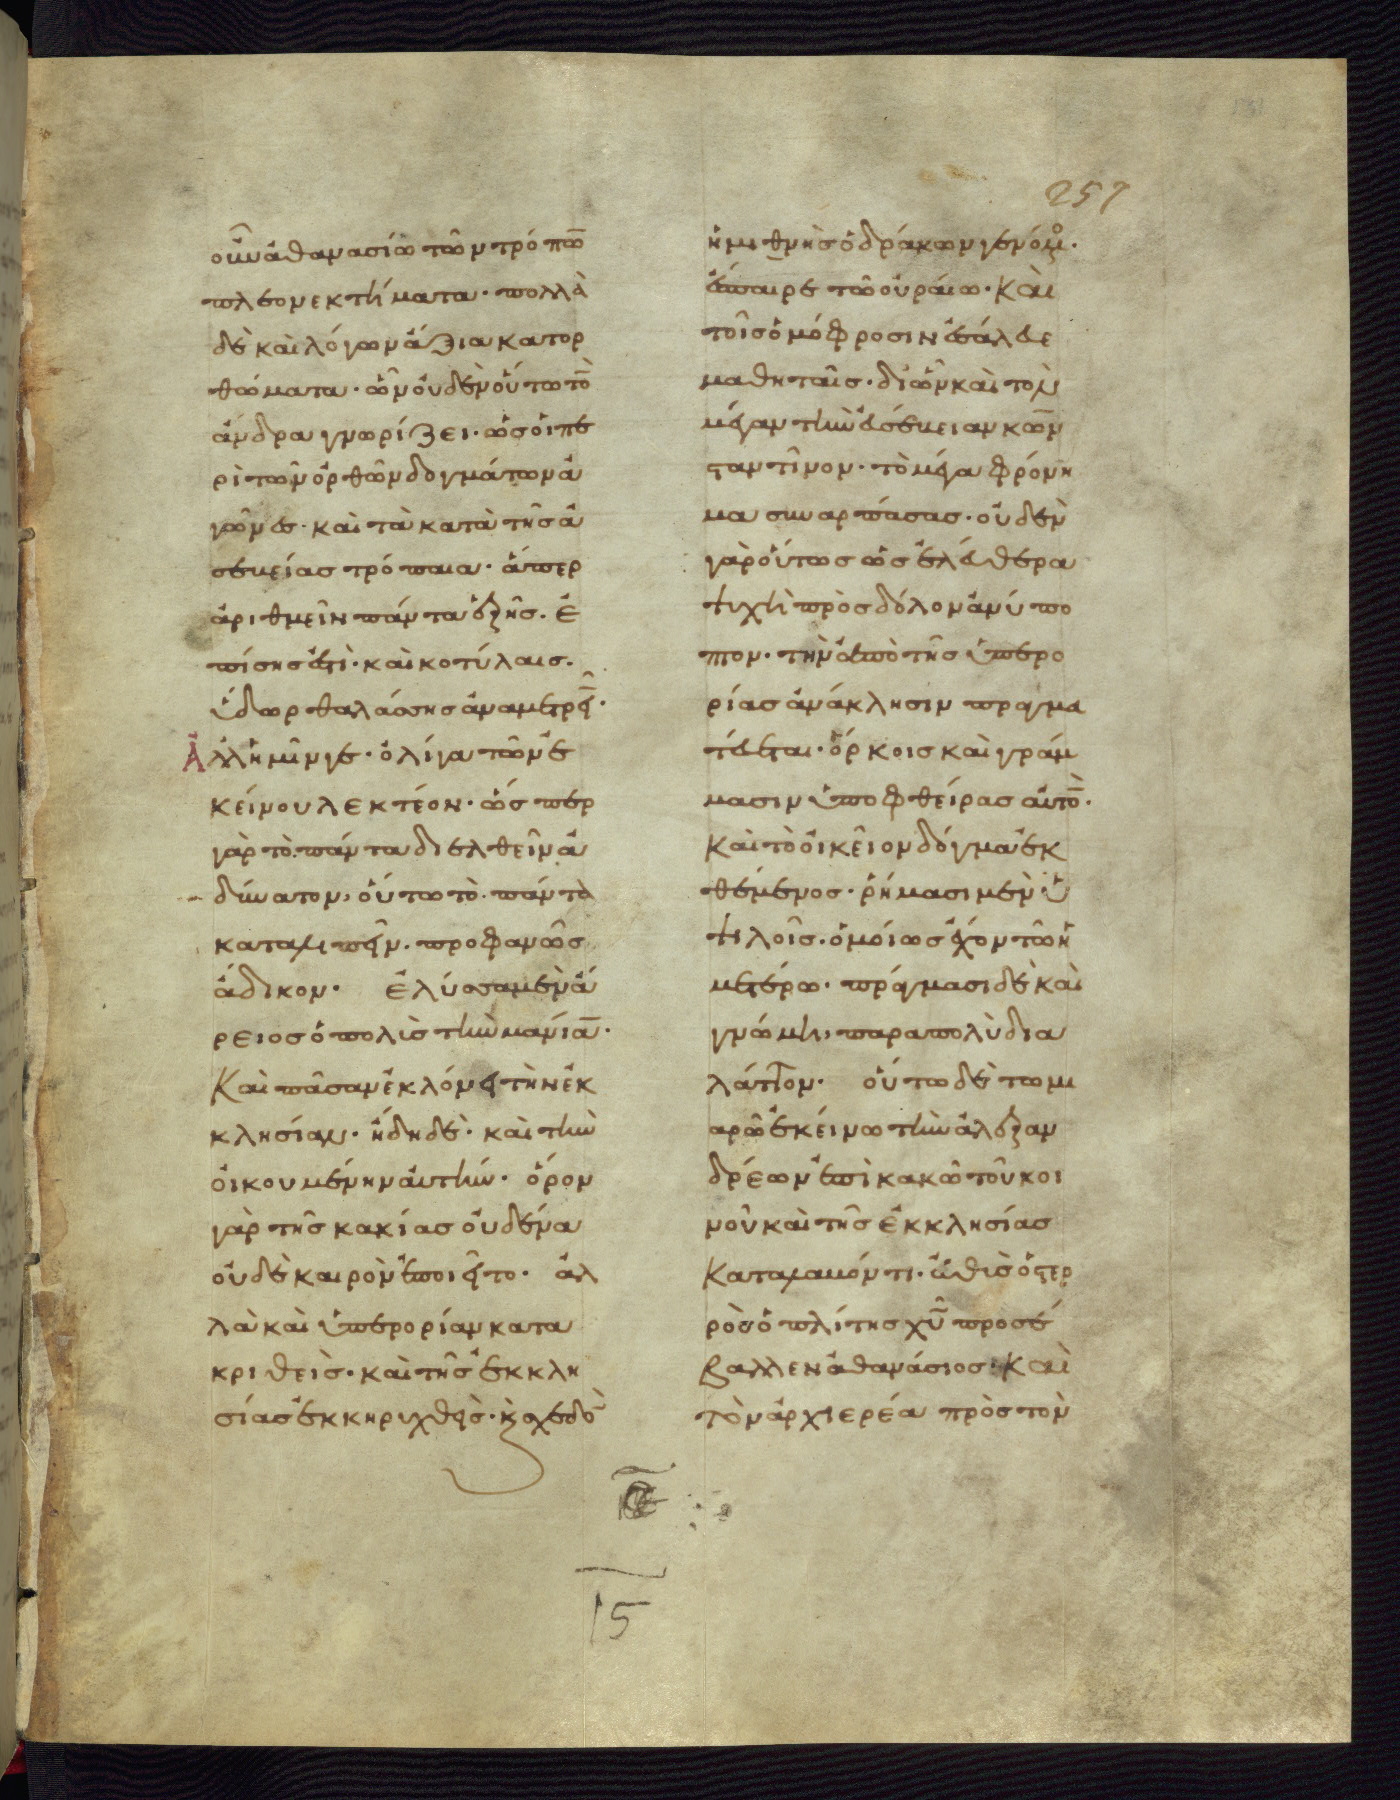 257
οὖν ἀθανασίω τῶν τρόπω̅
πλεονεκτήματα· πολλὰ
δὲ καὶ λόγων ἄξια κατορ
θώματα· ὧν οὐδὲν οὕτω το̅
ἄνδρα γνωρίζει· ὡς οἱ πε
ρὶ τῶν ὀρθῶν δογμάτων ἀ
γῶνες· καὶ τὰ κατὰ τῆς ἀ
σεβείας τρόπαια· ἅπερ
ἀριθμεῖν πάντα ἑξῆς. ἐ
πίσης ἐστὶ· καὶ κοτύλαις.
ὕδωρ θαλάσσης ἀναμετρεῖ̅·
Ἀλλ' ἡμῖν γε· ὀλίγα τῶν ἐ
κείνου λεκτέον· ὥσπερ
γὰρ τὸ πάντα διελθεῖν ἀ
δύνατον, οὕτω τὸ πάντα
καταλιπεῖν. προφανῶς
ἄδικον· Ἐλύσσα μὲν ἄ
ρειος ὁ πολὺς τὴν μανία̅·
Καὶ πᾶσαν ἐκλόνει τὴν ἐκ
κλησίαν· ἤδη δὲ· καὶ τὴν
οἰκουμένην αὐτήν· ὅρον
γὰρ τῆς κακίας οὐδένα
οὐδὲ καιρὸν ἐποιεῖτο· ἀλ
λὰ καὶ ὑπερορίαν κατα
κριθεὶς· καὶ τῆς ἐκκλη
σίας ἐκκηρυχθεὶς· κ̀ σχεδὸ̅
ἡμιθνὴς ὁ δράκων γενόμ̊·
ἐπαιρε τῶ οὐραίω· Καὶ
τοῖς ὁμόφροσιν ἐσάλευε
μαθηταῖς· δι' ὧν καὶ τὸν
μέγαν τὴν εὐσέβειαν κων
σταντῖνον· τὸ μέγα φρόνη
μα συναρπάσας· οὐδὲν
γὰρ οὕτως ὡς ἐλευθέρα
ψυχὴ πρὸς δόλον ἀνύπο
πτον· τὴν ἀπὸ τῆς ὑπερο
ρίας ἀνάκλησιν πραγμα
τεύεται· ὅρκοις καὶ γράμ
μασιν ὑποφθείρας αὐτὸ̅·
Καὶ τὸ οἰκεῖον δόγμα ἐκ
θέμενος· ῥήμασι μὲν ὑ
ψηλοῖς· ὁμοίως ἔχον τῶ ἡ
μετέρω· πράγμασι δὲ καὶ
γνώμη, παραπολὺ δια
λάττον· οὕτω δὲ τῶ μι
αρῶ ἐκείνω τὴν ἀλεξαν
δρέων ἐπὶ κακῶ τοῦ κοι
νοῦ καὶ τῆς ἐκκλησίας
Καταλαβόντι· εὐθὺς ὁ στερ
ρὸς ὁπλίτης χῦ προσέ
βαλλεν ἀθανάσιος· Καὶ
τὸν ἀρχιερέα πρὸς τὸν
15